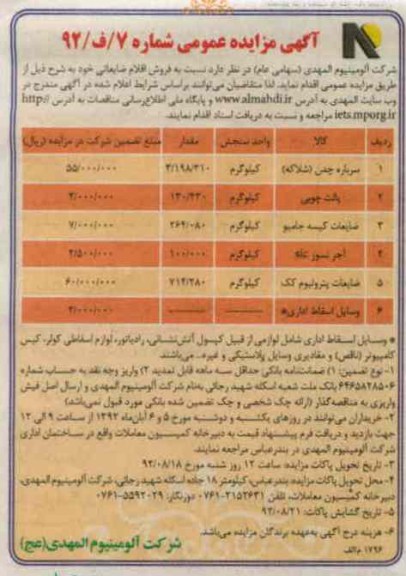 آگهی مزایده عمومی شماره ۷/ف/۹۲
شرکت آلومینیوم المهدی (سهامی عام) در نظر دارد نسبت به فروش اقلام ضایعاتی خود به شرح ذیل از
طریق مزایده عمومی اقدام نماید. لذا متقاضیان می‌توانند براساس شرایط اعلام شده در آگهی مندرج در
وب سایت المهدی به آدرس www.almahdi.ir و پایگاه ملی اطلاع‌رسانی مناقصات به آدرس http://
iets.mporg.ir مراجعه و نسبت به دریافت اسناد اقدام نمایند.
ردیف کالا واحد سنجش مقدار مبلغ تضمین شرکت در مزایده (ریال)
۱ سرباره چدن (شلاکه) کیلوگرم ۳/۱۹۸/۳۱۰ ۵۵/۰۰۰/۰۰۰
۲ پالت چوبی کیلوگرم ۱۳۰/۳۳۰ ۳/۰۰۰/۰۰۰
۳ ضایعات کیسه جامبو کیلوگرم ۲۶۹/۰۸۰ ۷/۰۰۰/۰۰۰
۴ آجر نسوز کیلوگرم ۱۰۰/۰۰۰ ۲/۵۰۰/۰۰۰
۵ ضایعات پترولیوم کک کیلوگرم ۷۱۴/۲۸۰ ۶۰/۰۰۰/۰۰۰
۶ وسایل اسقاط اداری* ------ ------ ۲/۰۰۰/۰۰۰
* وسایل اسقاط اداری شامل لوازمی از قبیل کپسول آتش‌نشانی، رادیاتور، لوازم اسقاطی کولر، کیس
کامپیوتر (ناقص) و مقادیری وسایل پلاستیکی و غیره.. می‌باشند
۱- نوع تضمین: ۱) ضمانتنامه بانکی حداقل سه ماهه قابل تمدید ۲) واریز وجه نقد به حساب شماره
۶۴۶۵۸۲۸۵۰۶ بانک ملت شعبه اسکله شهید رجائی بنام شرکت آلومینیوم المهدی و ارسال اصل فیش
واریزی به مناقصه‌گذار (ارائه چک شخصی و چک تضمین شده بانکی مورد قبول نمی‌باشد)
۲- خریداران می‌توانند در روزهای یکشنبه و دوشنبه مورخ ۵ و ۶ آبان‌ماه ۱۳۹۲ از ساعت ۹ الی ۱۲
جهت بازدید و دریافت فرم پیشنهاد قیمت به دبیرخانه کمیسیون معاملات واقع در ساختمان اداری
شرکت آلومینیوم المهدی در بندرعباس مراجعه نمایند.
۳- تاریخ تحویل پاکات مزایده: ساعت ۱۲ روز شنبه مورخ ۹۲/۰۸/۱۸
۴- محل تحویل پاکات مزایده: بندرعباس، کیلومتر ۱۸ جاده اسکله شهید رجائی، شرکت آلومینیوم المهدی،
دبیرخانه کمیسیون معاملات، تلفن ۲۱۵۲۶۳۱-۰۷۶۱ دورنگار: ۵۵۹۲۰۲۹-۰۷۶۱
۵- تاریخ گشایش پاکات: ۹۲/۰۸/۲۱
۶- هزینه درج آگهی بعهده برندگان مزایده می‌باشد.
۱۷۹۶ م‌الف
شرکت آلومینیوم المهدی(عج)